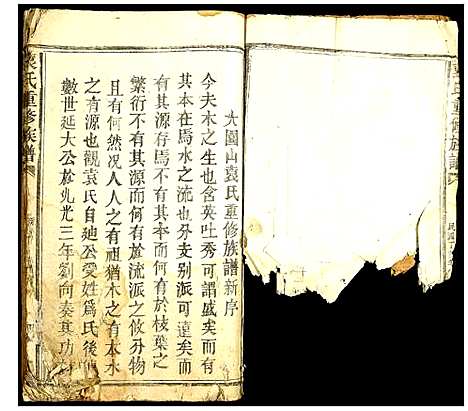 大園山袁氏重修族譜新序
今夫木之生也含英吐秀可謂盛矣而
其本在焉水之流也分支別派可遠矣而
有其源存焉不有其本而何有於枝葉之
繁衍不有其源而何有於流派之攸分物
且有然况人人之有祖猶木之有本水
之有源也觀袁氏自廸公受姓爲氏後
數世延大公於光三年劉向奏其功
袁氏重修族譜
重修族譜